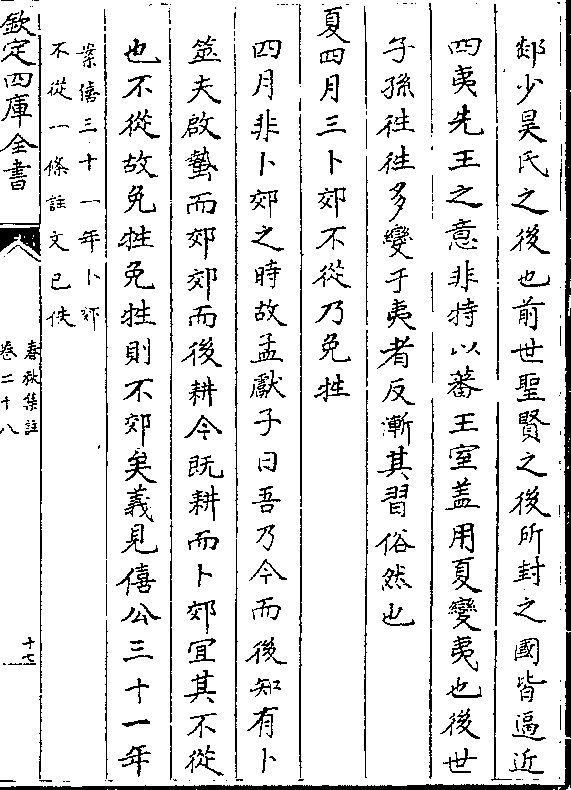 郯少昊氏之後也前世聖賢之後所封之國皆逼近
四夷先王之意非特以蕃王室盖用夏變夷也後世
子孫徃徃多變于夷者反漸其習俗然也
夏四月三卜郊不從乃免牲
四月非卜郊之時故孟獻子曰吾乃今而後知有卜
筮夫啟蟄而郊郊而後耕今既耕而卜郊宜其不從
也不從故免牲免牲則不郊矣義見僖公三十一年
案僖三十一年卜郊
不從一條註文已佚
欽定四庫全書
春秋集註
卷二十八
十七